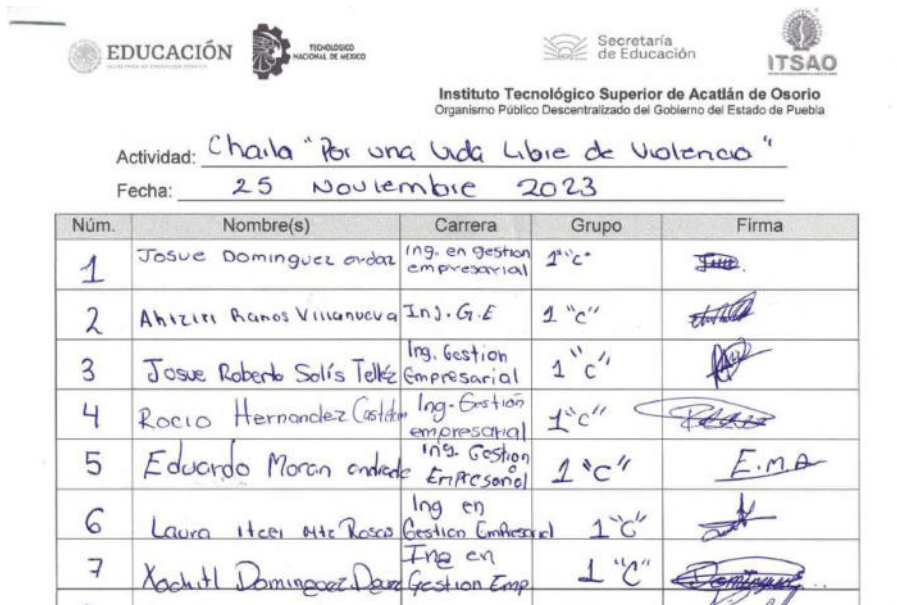 EDUCACIÓN
TECNOLÓGICO
NACIONAL DE MÉXICO
Secretaría
de Educación
ITSAO
Instituto Tecnológico Superior de Acatlán de Osorio
Organismo Público Descentralizado del Gobierno del Estado de Puebla
Actividad: Charla "Por una Vida Libre de Violencia"
Fecha: 25 Noviembre 2023
Núm. Nombre(s) Carrera Grupo Firma
1 Josue Dominguez ordaz Ing. en gestion empresarial 1"c"
2 Ramos Villanueva Ing. G.E 1 "c"
3 Josue Roberto Solís Telléz Ing. Gestion Empresarial 1 "c"
4 Rocio Hernandez Ing. Gestion empresarial 1"c"
5 Eduardo Moran andrade Ing. Gestion Empresarial 1 "c" E.M.A
6 Laura Itcel Mtz Rosas Ing en Gestion Empresarial 1"C"
7 Xochitl Dominguez Ing en Gestion Emp 1 "C" Dominguez